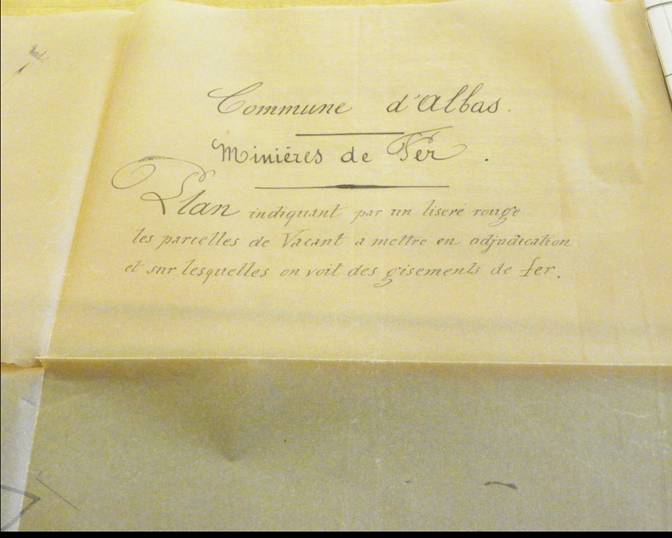 Commune d'Albas.
Minières de Fer.
Plan indiquant par un liseré rouge
les parcelles de Vacant a mettre en adjudication
et sur lesquelles on voit des gisements de fer.